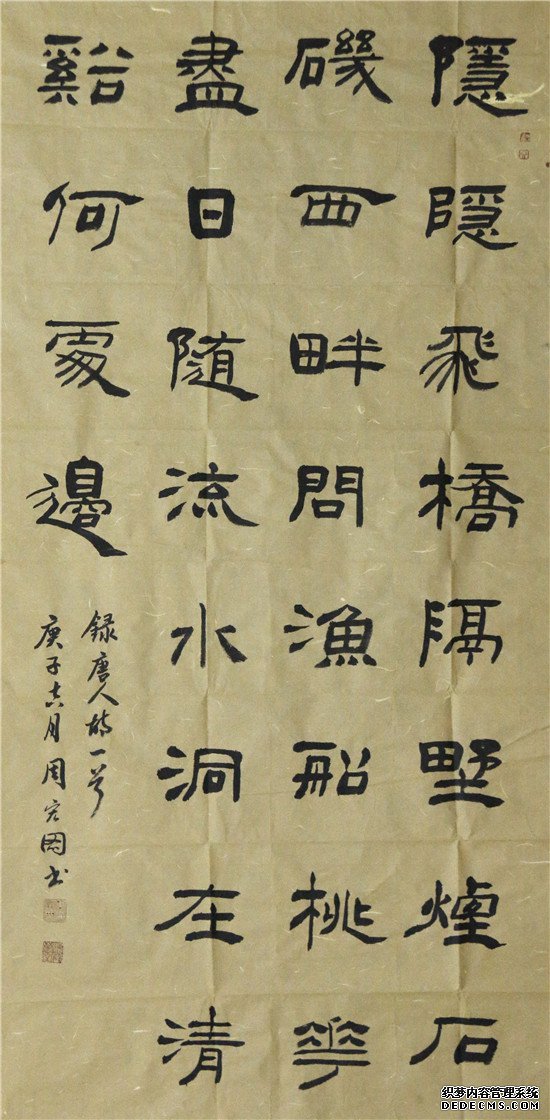 隱隱飛橋隔野煙石
磯西畔問漁船桃花
盡日隨流水洞在清
谿何處邊
録唐人詩一首
庚子 月周 国书
织梦内容管理系统
DEDECMS.COM